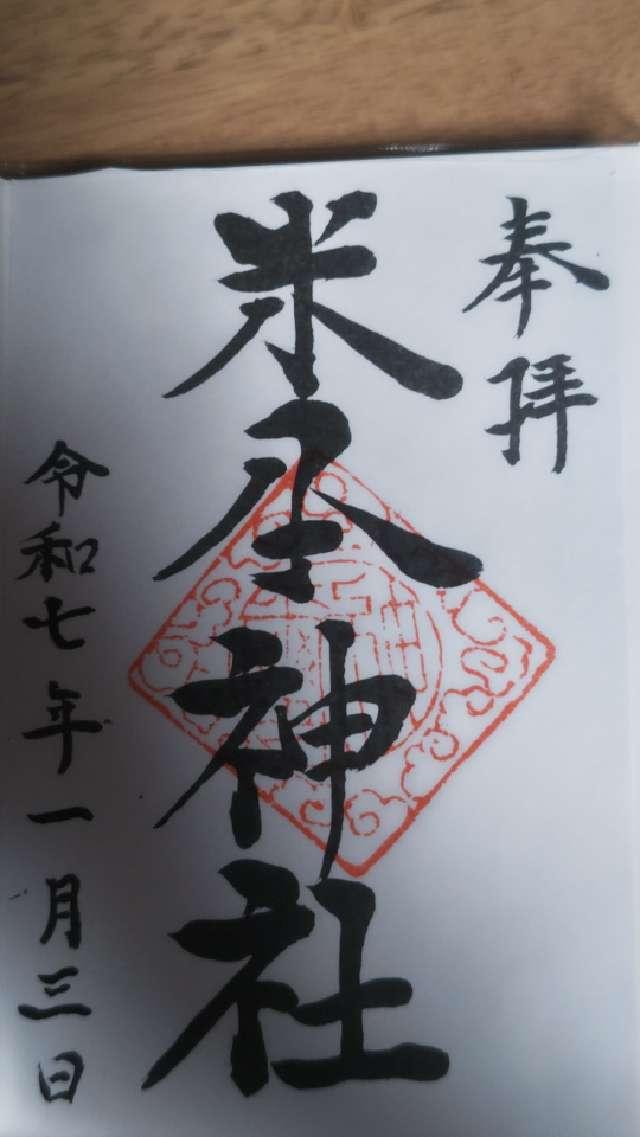 奉拝
米 神社
令和七年一月三日